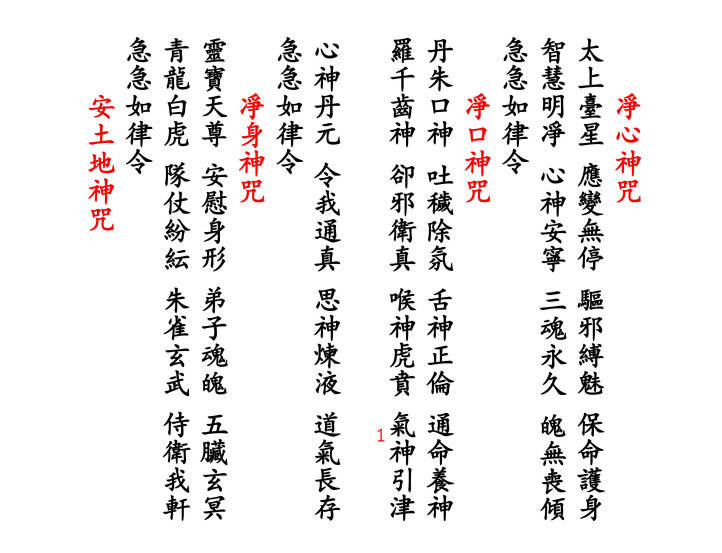 凈心神咒
太上臺星 應變無停 驅邪縛魅 保命護身
智慧明凈 心神安寧 三魂永久 魄無喪傾
急急如律令
凈口神咒
丹朱口神 吐穢除氛 舌神正倫 通命養神
羅千齒神 卻邪衛真 喉神虎賁 氣神引津
1
心神丹元 令我通真 思神煉液 道氣長存
急急如律令
凈身神咒
靈寶天尊 安慰身形 弟子魂魄 五臟玄冥
青龍白虎 隊仗紛紜 朱雀玄武 侍衛我軒
急急如律令
安土地神咒